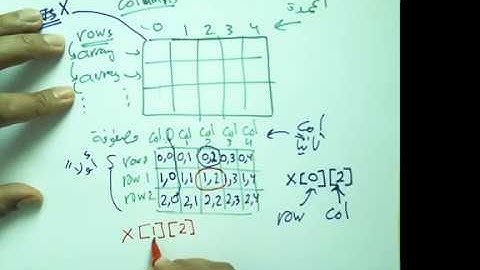 columns
X
0 1 2 3 4
أعمدة
rows
array
array
مصفوفة
col 0 col 1 col 2 col 3 col 4
col
ثانيا
أولا
row0 0,0 0,1 0,2 0,3 0,4
row 1 1,0 1,1 1,2 1,3 1,4
row 2 2,0 2,1 2,2 2,3 2,4
X[0][2]
row col
X[1][2]